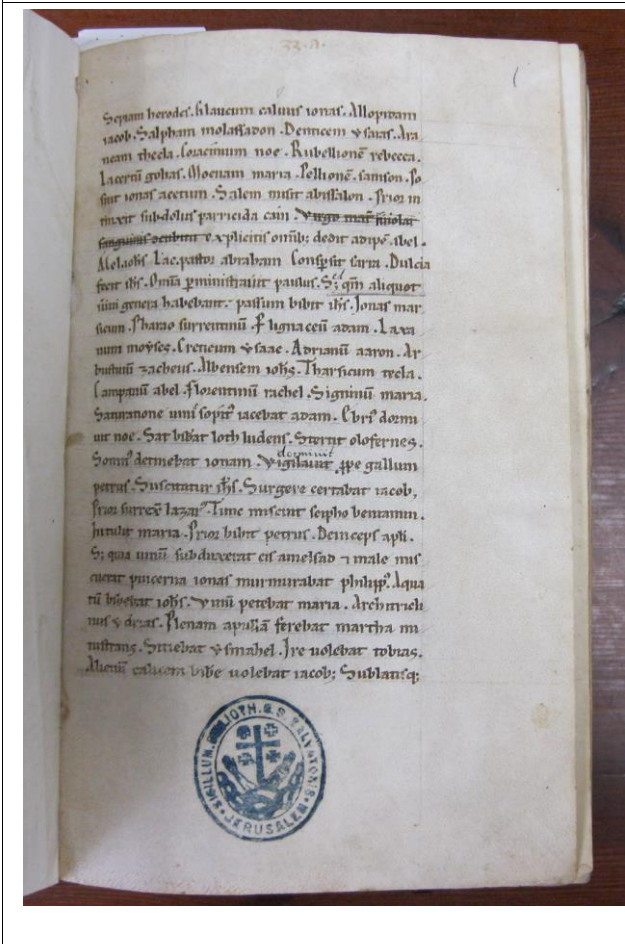 33.A.
1
Sepiam herodes. Glaucum caluus ionas. Allopidam
iacob. Salpham molassadon. Denticem ysaias. Ara
neam thecla. Coracinum noe. Rubellionē rebecca.
Lacertū gobas. Moenam maria. Pellionē. samson. Po
suit ionas acetum. Salem misit abissalon. Prior in
tinxit subdolus parricida cain. Virgo
sanguinis explicitis omnib; dedit adipē abel.
Mel. ioħs Lac. pastor abraham Conspsit sarra. Dulcia
fecit iħs. Omīa ꝑministrauit paulus. S; qm̄ aliquot
uini genera habebant. passum bibit iħs. Ionas mar
sicum. Pharao surrentinū. Flignaceū adam. Laxa
num moyses. Creticum ysaac. Adrianū aaron. Ar
bustiuū zacheus. Albensem ioħs. Tharsicum tecla.
Campanū abel. Florentinū rachel. Signinū maria.
Saturatione uini sopit᾿ iacebat adam. Ebri᾿ dormi
uit noe. Sat bibbat loth ludens. Stertit olofernes.
dormiuit
Somn᾿ detinebat ionam. Vigilauit ꝓpe gallum
petrus. Suscitatur iħs. Surgere certabat iacob,
Prior surrex lazar᾿. Tunc miscuit scipho beniamin.
Intulit maria. Prior bibit petrus. Deinceps apłi.
S; quia uinū subduxerat eis amelsad ⁊ male mis
cuerat pincerna ionas murmurabat philipp᾿. Aqua
tū bibebat ioħs. Vinū petebat maria. Architricli
nus ydrias. Plenam apullā ferebat martha mi
nistrans. Sitiebat ysmahel. Ire uolebat tobias.
Alienū calicem bibe uolebat iacob; Sublatisq;
SIGILLUM. BIBLIOTH. C. S. SALVATORIS. JERUSALEM